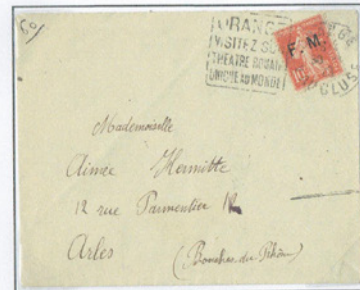 60
ORANGE
VISITEZ SON
THEATRE ROMAIN
UNIQUE AU MONDE
F. M.
Mademoiselle
Aimée Hermitte
12 rue Parmentier 12
Arles
(Bouches du Rhône)